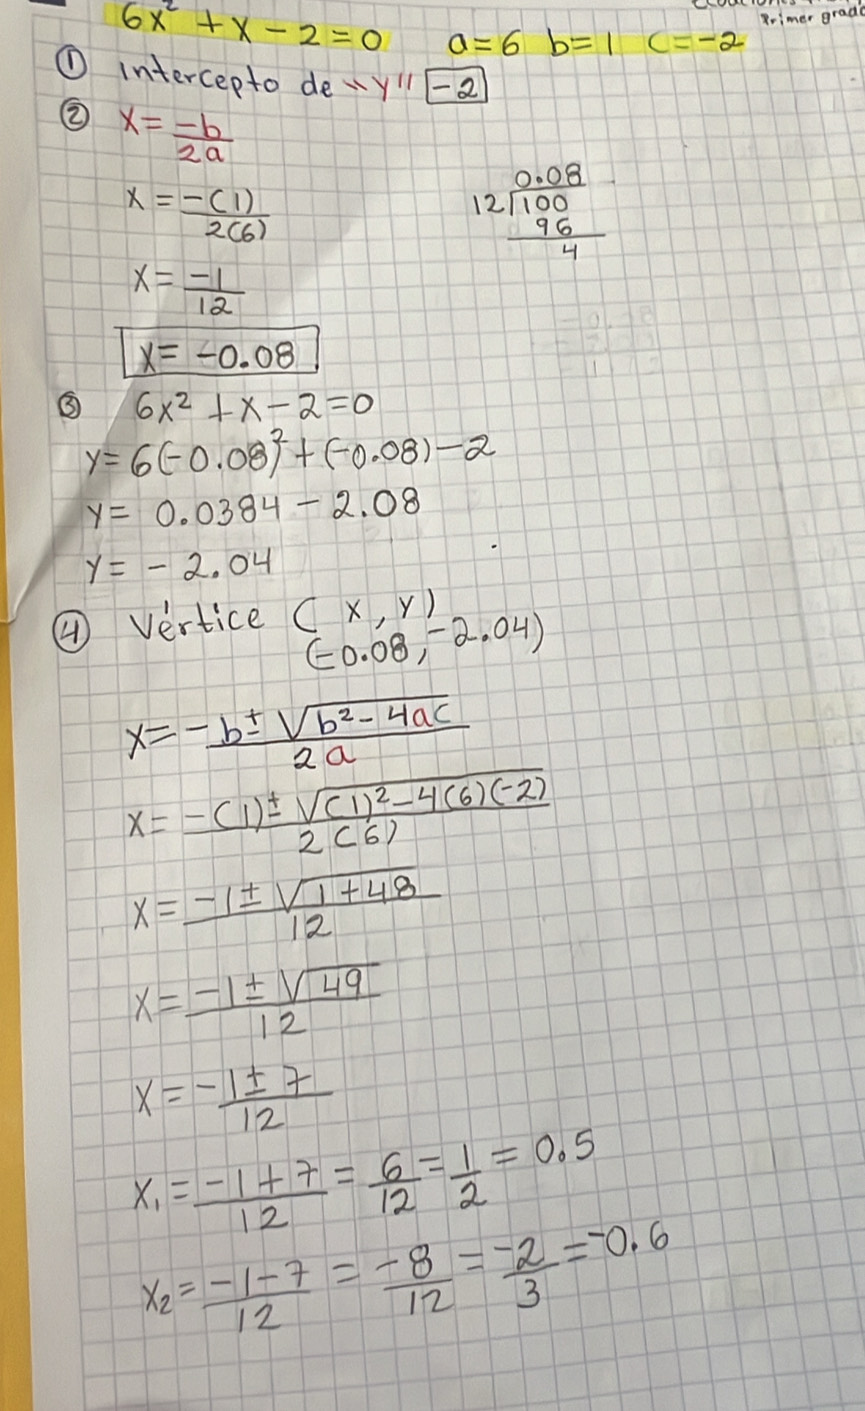 Primer grado
6x² + x - 2 = 0 a = 6 b = 1 c = -2
① intercepto de "y" -2
② x = -b/2a
x = -(1)/2(6)
0.08
12 100
96
4
x = -1/12
x = -0.08
③ 6x² + x - 2 = 0
y = 6(-0.08)² + (-0.08) - 2
y = 0.0384 - 2.08
y = -2.04
④ Vértice (x, y)
(-0.08, -2.04)
x = -b ± √b² - 4ac / 2a
x = -(1) ± √(1)² - 4(6)(-2) / 2(6)
x = -1 ± √1 + 48 / 12
x = -1 ± √49 / 12
x = -1 ± 7 / 12
x₁ = -1 + 7 / 12 = 6/12 = 1/2 = 0.5
x₂ = -1 - 7 / 12 = -8/12 = -2/3 = -0.6